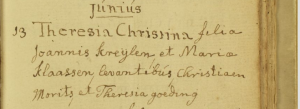 Junius
13 Theresia Christina filia
Joannis Kreylen et Mariæ
Klaassen, levantibus Christiaen
Morits et Theresia goeding